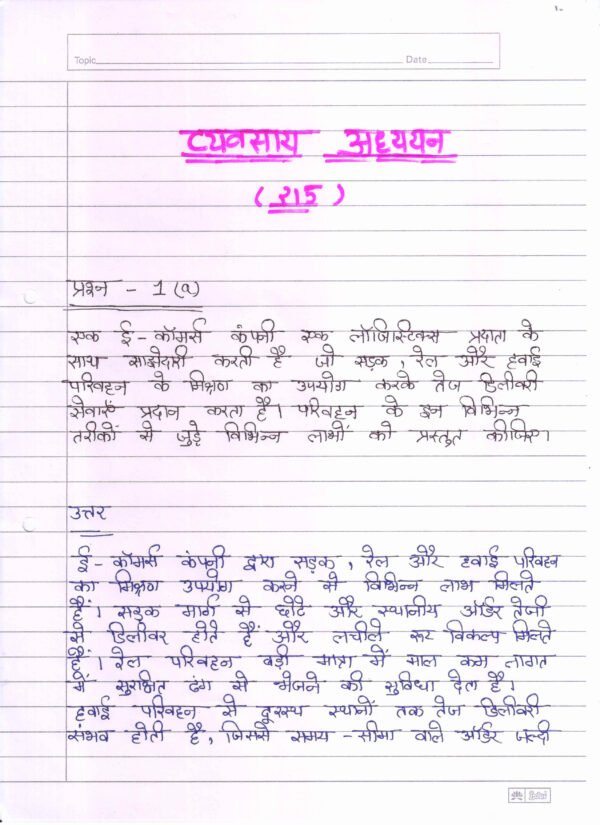 Topic
Date
व्यवसाय अध्ययन
( 215 )
प्रश्न - 1 (a)
एक ई-कॉमर्स कंपनी एक लॉजिस्टिक्स प्रदाता के
साथ साझेदारी करती है जो सड़क, रेल और हवाई
परिवहन के मिश्रण का उपयोग करके तेज डिलीवरी
सेवाएँ प्रदान करता है। परिवहन के इन विभिन्न
तरीकों से जुड़े विभिन्न लाभों को प्रस्तुत कीजिए।
उत्तर
ई-कॉमर्स कंपनी द्वारा सड़क, रेल और हवाई परिवहन
का मिश्रण उपयोग करने से विभिन्न लाभ मिलते
हैं। सड़क मार्ग से छोटे और स्थानीय ऑर्डर तेजी
से डिलीवर होते हैं और लचीले रूट विकल्प मिलते
हैं। रेल परिवहन बड़ी मात्रा में माल कम लागत
में सुरक्षित ढंग से भेजने की सुविधा देता है।
हवाई परिवहन से दूरस्थ स्थानों तक तेज डिलीवरी
संभव होती है, जिससे समय-सीमा वाले ऑर्डर जल्दी